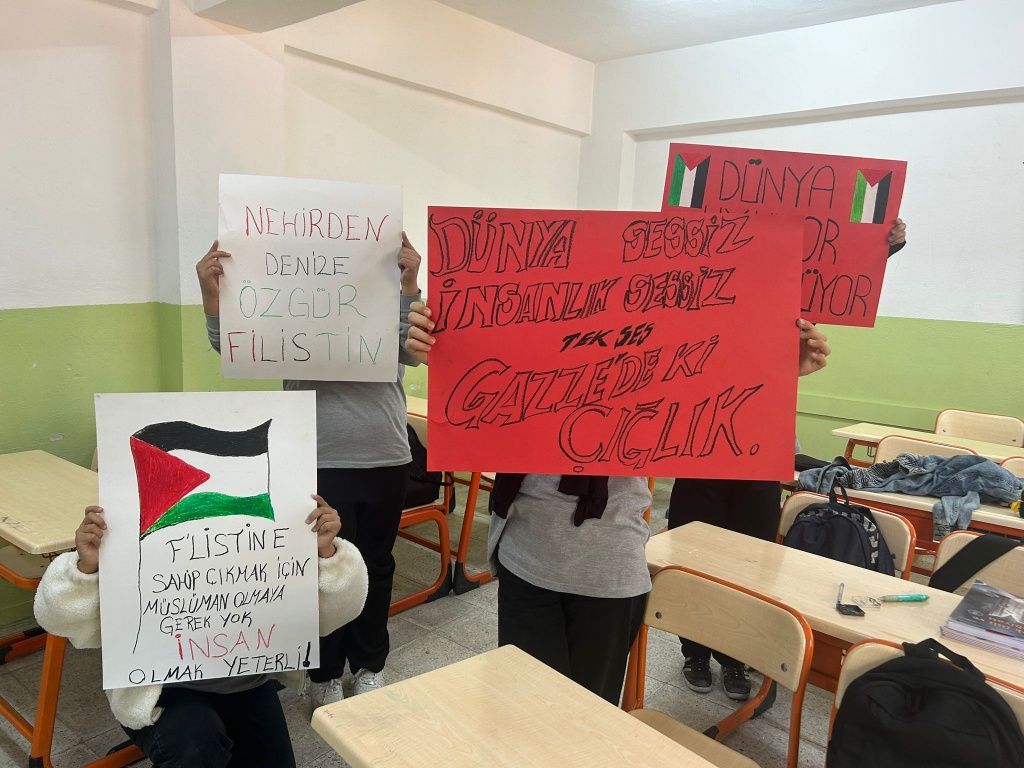 NEHİRDEN
DENİZE
ÖZGÜR
FİLİSTİN
DÜNYA SESSİZ
İNSANLIK SESSİZ
TEK SES
GAZZE'DE Kİ
ÇIĞLIK.
DÜNYA
F'LİSTİNE
SAHİP ÇIKMAK İÇİN
MÜSLÜMAN OLMAYA
GEREK YOK
İNSAN
OLMAK YETERLİ!